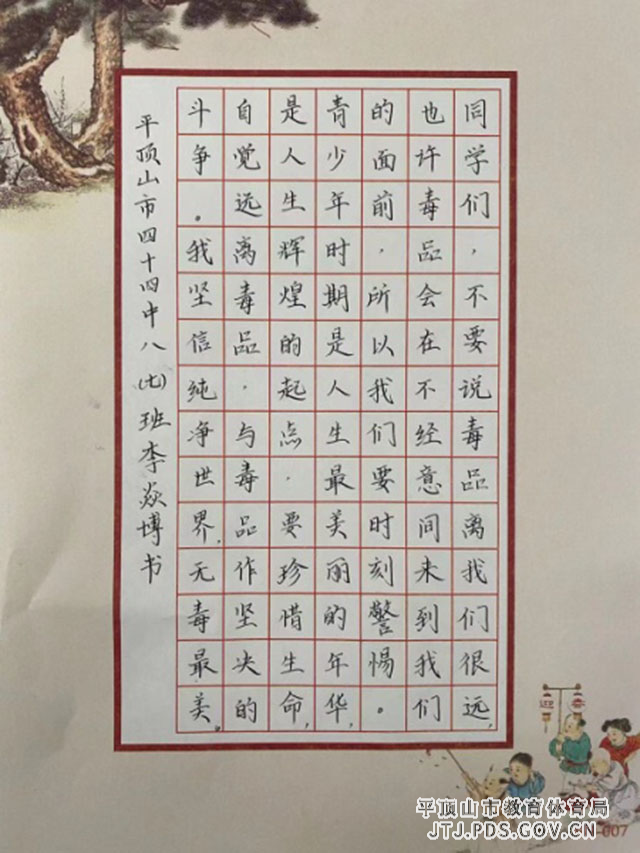 同学们，不要说毒品离我们很远，
也许毒品会在不经意间来到我们
的面前，所以我们要时刻警惕。
青少年时期是人生最美丽的年华，
是人生辉煌的起点，要珍惜生命，
自觉远离毒品，与毒品作坚决的
斗争。我坚信纯净世界，无毒最美。
平顶山市四十四中八（七）班李焱博书
迎春
平顶山市教育体育局
JTJ.PDS.GOV.CN
-007